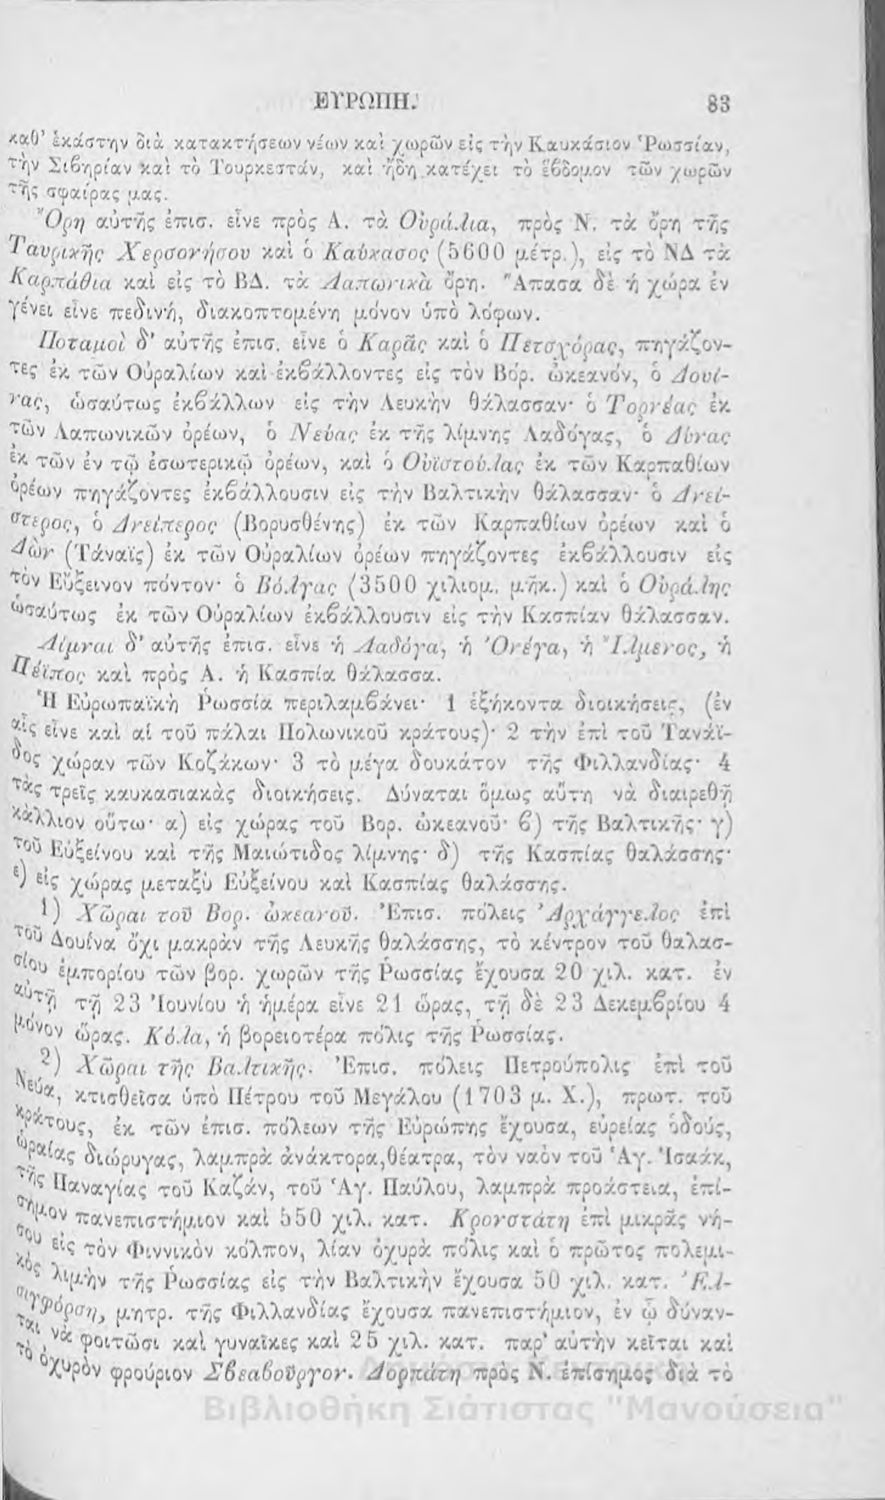 ΕΥΡΩΠΗ. 83
καθ' ἑκάστην διὰ κατακτήσεων νέων καὶ χωρῶν εἰς τὴν Καυκάσιον Ῥωσσίαν,
τὴν Σιβηρίαν καὶ τὸ Τουρκεστάν, καὶ ἤδη κατέχει τὸ ἕβδομον τῶν χωρῶν
τῆς σφαίρας μας.
Ὄρη αὐτῆς ἐπισ. εἶνε πρὸς Α. τὰ Οὐράλια, πρὸς Ν. τὰ ὄρη τῆς
Ταυρικῆς Χερσονήσου καὶ ὁ Καύκασος (5600 μέτρ.), εἰς τὸ ΝΔ τὰ
Καρπάθια καὶ εἰς τὸ ΒΔ. τὰ Λαπωνικὰ ὄρη. Ἅπασα δὲ ἡ χώρα ἐν
γένει εἶνε πεδινή, διακοπτομένη μόνον ὑπὸ λόφων.
Ποταμοὶ δ' αὐτῆς ἐπισ. εἶνε ὁ Καρᾶς καὶ ὁ Πετσχόρας, πηγάζον-
τες ἐκ τῶν Οὐραλίων καὶ ἐκβάλλοντες εἰς τὸν Βόρ. ὠκεανόν, ὁ Δουί-
νας, ὡσαύτως ἐκβάλλων εἰς τὴν Λευκὴν θάλασσαν· ὁ Τορνέας ἐκ
τῶν Λαπωνικῶν ὀρέων, ὁ Νεύας ἐκ τῆς λίμνης Λαδόγας, ὁ Δύνας
ἐκ τῶν ἐν τῷ ἐσωτερικῷ ὀρέων, καὶ ὁ Οὐϊστούλας ἐκ τῶν Καρπαθίων
ὀρέων πηγάζοντες ἐκβάλλουσιν εἰς τὴν Βαλτικὴν θάλασσαν· ὁ Δνεί-
στερος, ὁ Δνείπερος (Βορυσθένης) ἐκ τῶν Καρπαθίων ὀρέων καὶ ὁ
Δὼν (Τάναϊς) ἐκ τῶν Οὐραλίων ὀρέων πηγάζοντες ἐκβάλλουσιν εἰς
τὸν Εὔξεινον πόντον· ὁ Βόλγας (3500 χιλιομ. μῆκ.) καὶ ὁ Οὐράλης
ὡσαύτως ἐκ τῶν Οὐραλίων ἐκβάλλουσιν εἰς τὴν Κασπίαν θάλασσαν.
Λίμναι δ' αὐτῆς ἐπισ. εἶνε ἡ Λαδόγα, ἡ Ὀνέγα, ἡ Ἴλμενος, ἡ
Πέϊπος καὶ πρὸς Α. ἡ Κασπία θάλασσα.
Ἡ Εὐρωπαϊκὴ Ῥωσσία περιλαμβάνει· 1 ἑξήκοντα διοικήσεις, (ἐν
αἷς εἶνε καὶ αἱ τοῦ πάλαι Πολωνικοῦ κράτους)· 2 τὴν ἐπὶ τοῦ Τανάϊ-
δος χώραν τῶν Κοζάκων· 3 τὸ μέγα δουκάτον τῆς Φιλλανδίας· 4
τὰς τρεῖς καυκασιακὰς διοικήσεις. Δύναται ὅμως αὕτη νὰ διαιρεθῇ
κάλλιον οὕτω· α) εἰς χώρας τοῦ Βορ. ὠκεανοῦ· β) τῆς Βαλτικῆς· γ)
τοῦ Εὐξείνου καὶ τῆς Μαιώτιδος λίμνης· δ) τῆς Κασπίας θαλάσσης·
ε) εἰς χώρας μεταξὺ Εὐξείνου καὶ Κασπίας θαλάσσης.
1) Χῶραι τοῦ Βορ. ὠκεανοῦ. Ἐπισ. πόλεις Ἀρχάγγελος ἐπὶ
τοῦ Δουίνα ὄχι μακρὰν τῆς Λευκῆς θαλάσσης, τὸ κέντρον τοῦ θαλασ-
σίου ἐμπορίου τῶν βορ. χωρῶν τῆς Ῥωσσίας ἔχουσα 20 χιλ. κατ. ἐν
αὐτῇ τῇ 23 Ἰουνίου ἡ ἡμέρα εἶνε 21 ὥρας, τῇ δὲ 23 Δεκεμβρίου 4
μόνον ὥρας. Κόλα, ἡ βορειοτέρα πόλις τῆς Ῥωσσίας.
2) Χῶραι τῆς Βαλτικῆς. Ἐπισ. πόλεις Πετρούπολις ἐπὶ τοῦ
Νεύα, κτισθεῖσα ὑπὸ Πέτρου τοῦ Μεγάλου (1703 μ. Χ.), πρωτ. τοῦ
κράτους, ἐκ τῶν ἐπισ. πόλεων τῆς Εὐρώπης ἔχουσα, εὐρείας ὁδούς,
ὡραίας διώρυγας, λαμπρὰ ἀνάκτορα, θέατρα, τὸν ναὸν τοῦ Ἁγ. Ἰσαάκ,
τῆς Παναγίας τοῦ Καζάν, τοῦ Ἁγ. Παύλου, λαμπρὰ προάστεια, ἐπί-
σημον πανεπιστήμιον καὶ 550 χιλ. κατ. Κρονστάτη ἐπὶ μικρᾶς νή-
σου εἰς τὸν Φιννικὸν κόλπον, λίαν ὀχυρὰ πόλις καὶ ὁ πρῶτος πολεμι-
κὸς λιμὴν τῆς Ῥωσσίας εἰς τὴν Βαλτικὴν ἔχουσα 50 χιλ. κατ. Ἑλ-
σιγφόρση, μητρ. τῆς Φιλλανδίας ἔχουσα πανεπιστήμιον, ἐν ᾧ δύναν-
ται νὰ φοιτῶσι καὶ γυναῖκες καὶ 25 χιλ. κατ. παρ' αὐτὴν κεῖται καὶ
τὸ ὀχυρὸν φρούριον Σβεαβοῦργον. Δορπάτη πρὸς Ν. ἐπίσημος διὰ τὸ
Βιβλιοθήκη Σιάτιστας "Μανούσεια"